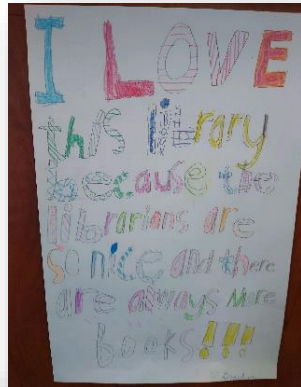 I LOVE
this library
because the
librarians are
so nice and there
are always more
books!!!